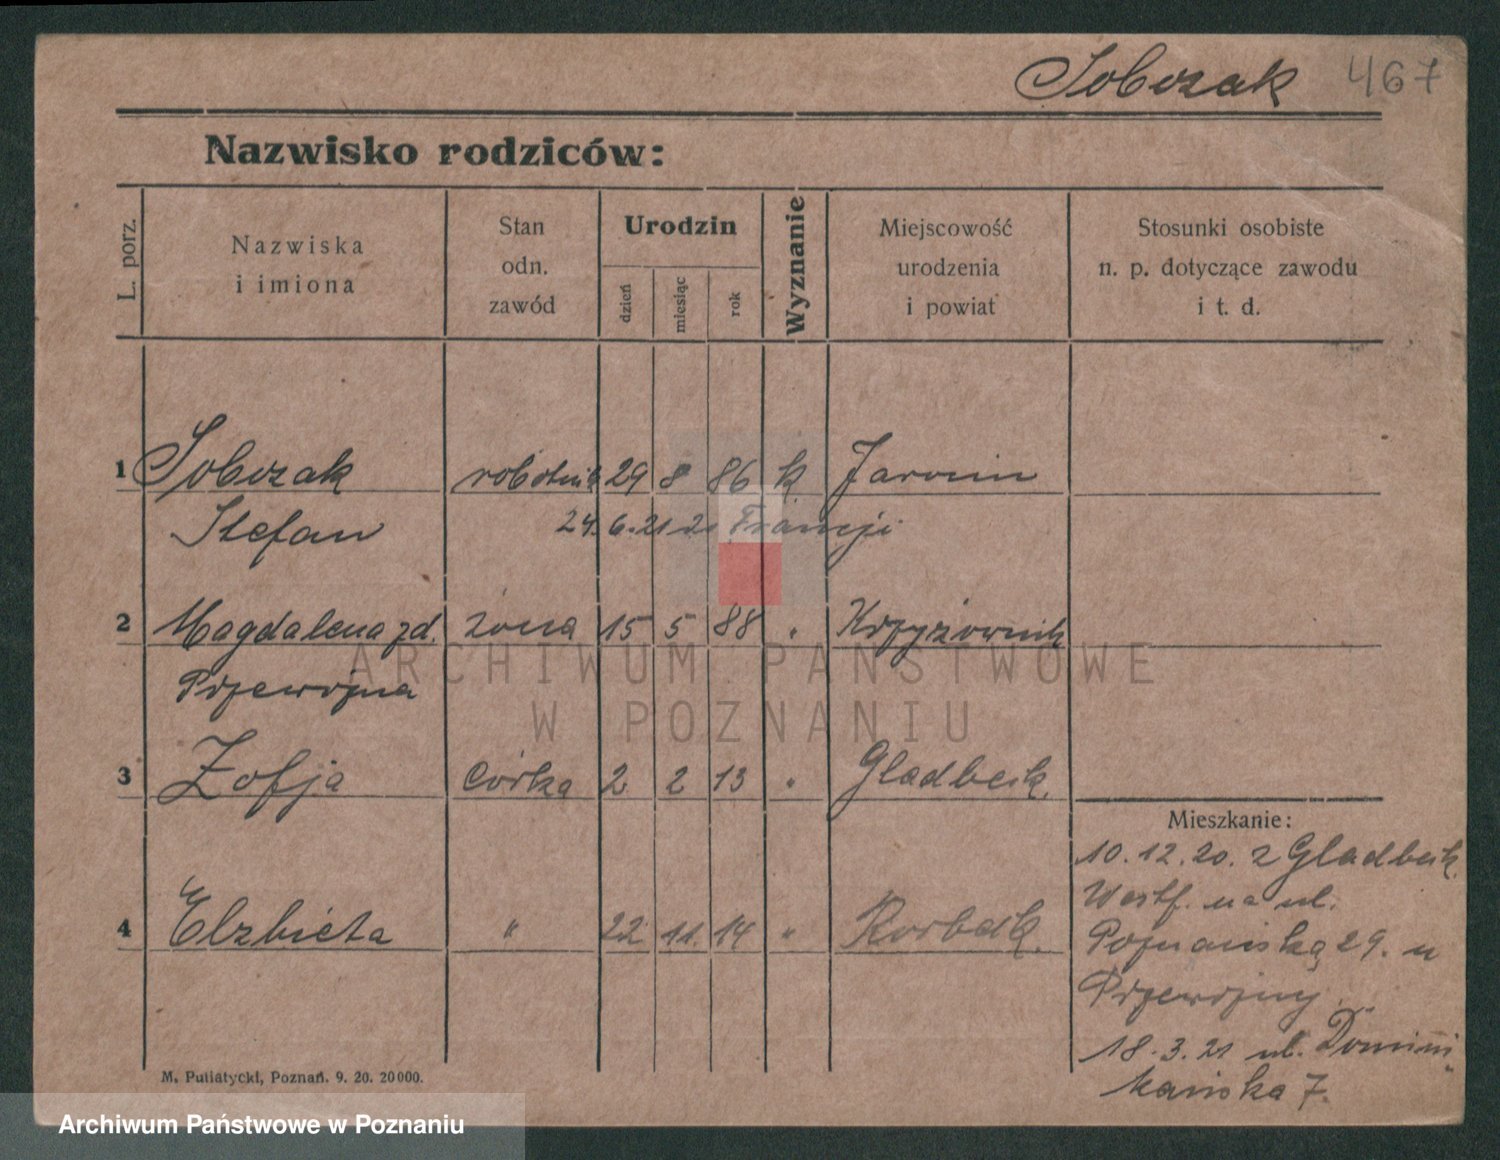 Sobczak 467
Nazwisko rodziców:
L. porz.
Nazwiska
i imiona
Stan
odn.
zawód
Urodzin
dzień
miesiąc
rok
Wyznanie
Miejscowość
urodzenia
i powiat
Stosunki osobiste
n. p. dotyczące zawodu
i t. d.
1 Sobczak robotnik 29 8 86 k Jarocin
Stefan 24. 6. 21 z Francji
2 Magdalena zd. żona 15 5 88 " Krzyżownik
Przewojna
3 Zofja córka 2 2 13 " Gladbeck.
4 Elzbieta " 22 11. 14 "
Mieszkanie:
10.12.20. z Gladbeck
Westf. na ul.
Poznańską 29. u
Przewojny.
18.3.21 ul. Domini-
kańska 7.
M. Putiatycki, Poznań. 9. 20. 20000.
ARCHIWUM PAŃSTWOWE
W POZNANIU
Archiwum Państwowe w Poznaniu